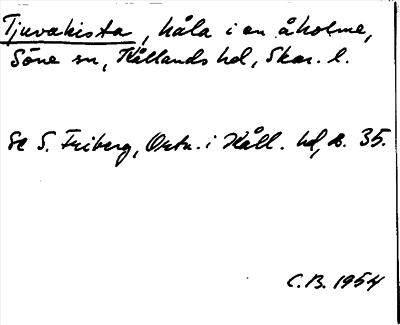 Tjuvakista, håla i en åholme,
Söne sn, Kållands hd, Skar. l.
Se S. Friberg, Ortn. i Kåll. hd, s. 35.
C.B. 1954